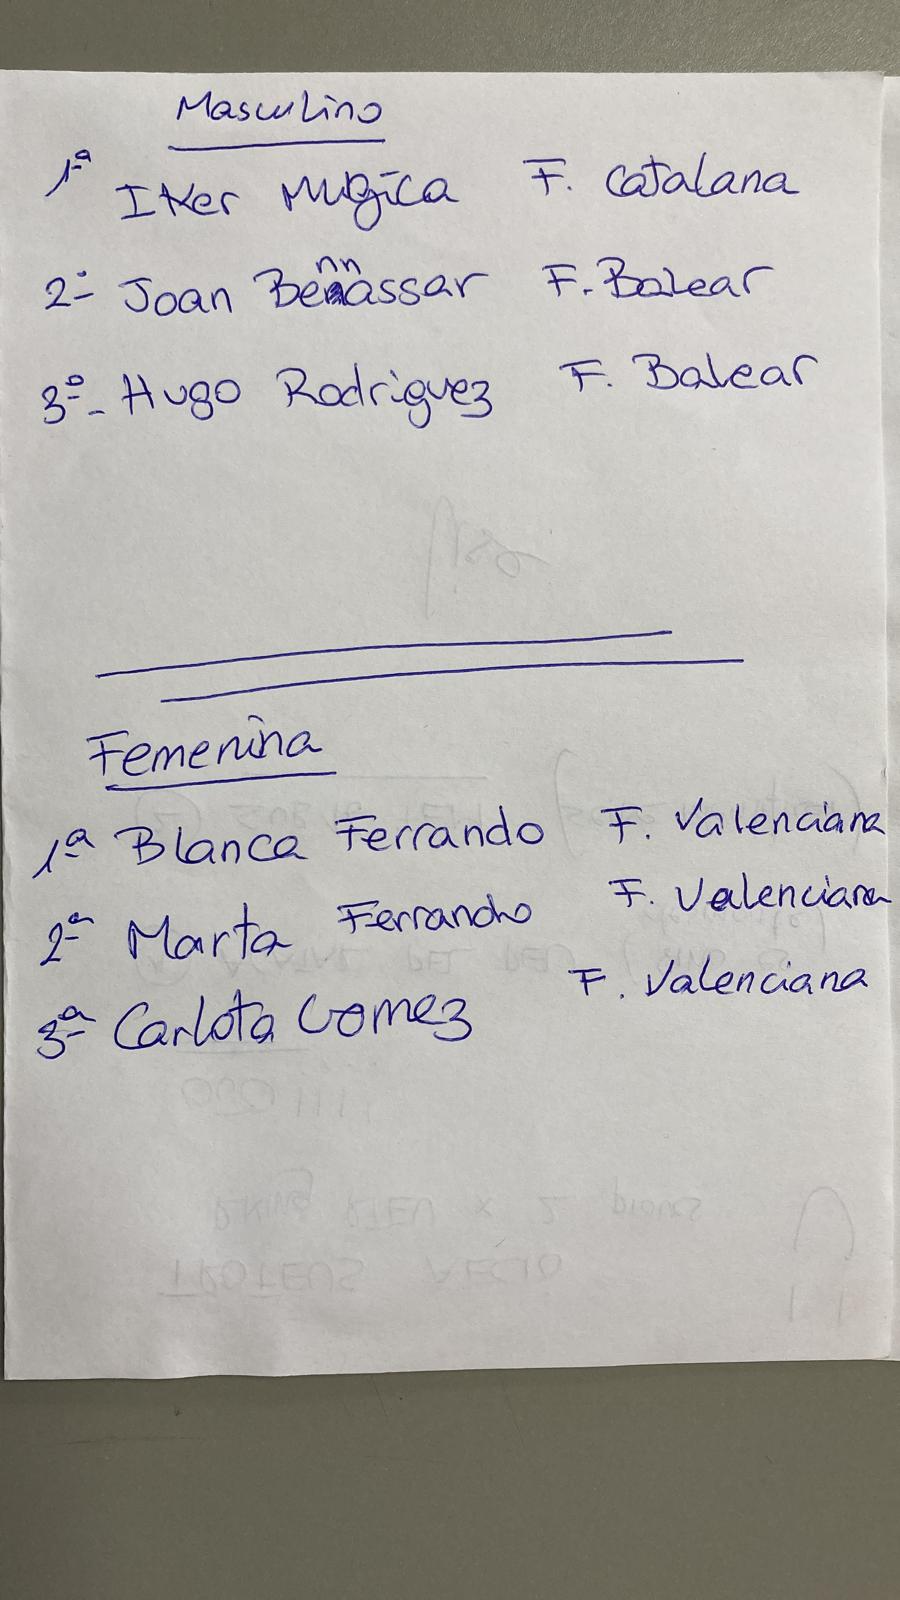 Masculino
1ª Iker Mugica F. Catalana
2- Joan Bennassar F. Balear
3º- Hugo Rodriguez F. Balear
Femenina
1ª Blanca Ferrando F. Valenciana
2ª Marta Ferrando F. Valenciana
3ª Carlota Gomez F. Valenciana